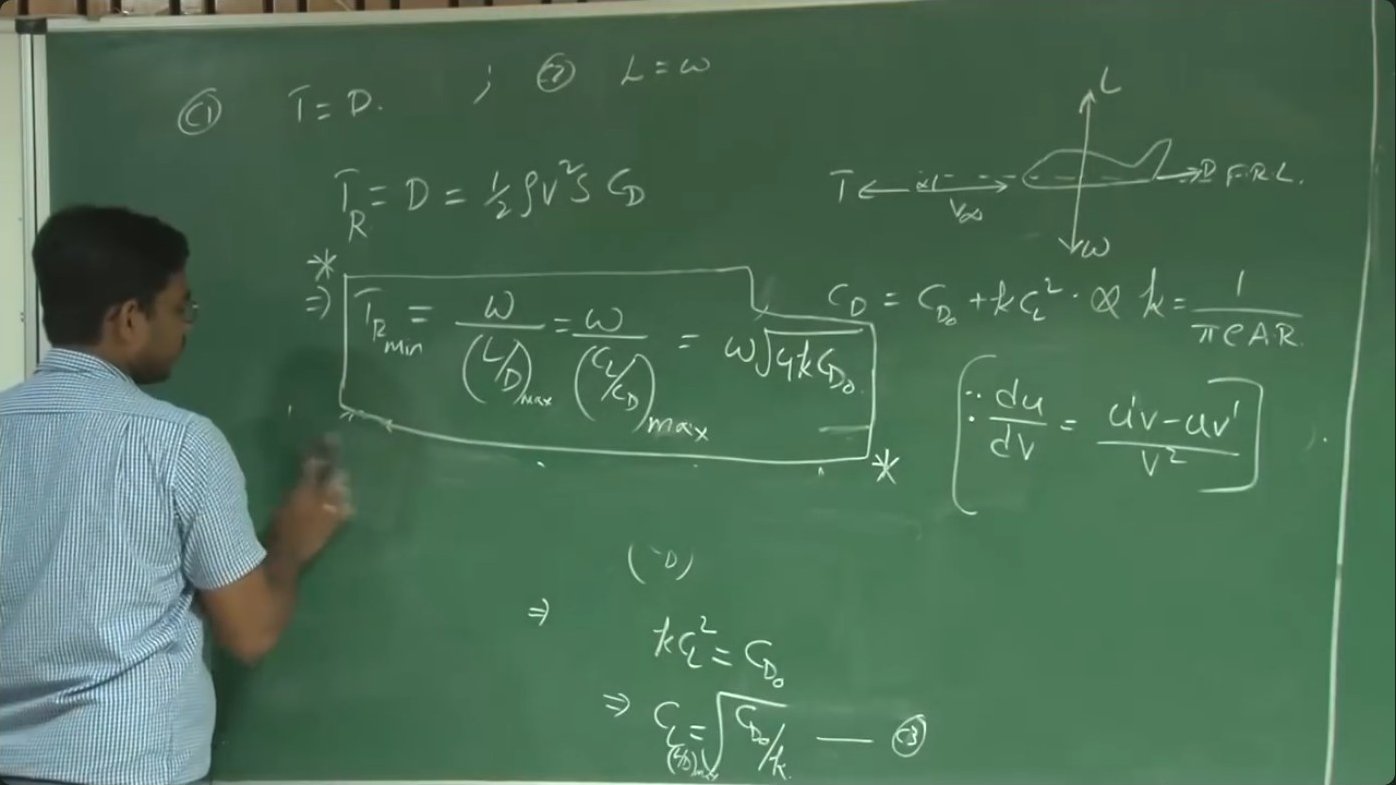 (C1) T = D. ; (C2) L = W
L
T_R = D = 1/2 ρV²S C_D
T αL V∞ D F.R.L.
W
* ⇒ T_R_min = W/(L/D)_max = W/(C_L/C_D)_max = W√(4kC_D₀) *
C_D = C_D₀ + kC_L² · & k = 1/(πeAR.)
[∵ du/dv = (u'v − uv')/v²]
⇒
kC_L² = C_D₀
⇒ C_L (L/D)_max = √(C_D₀/k) — (C3)